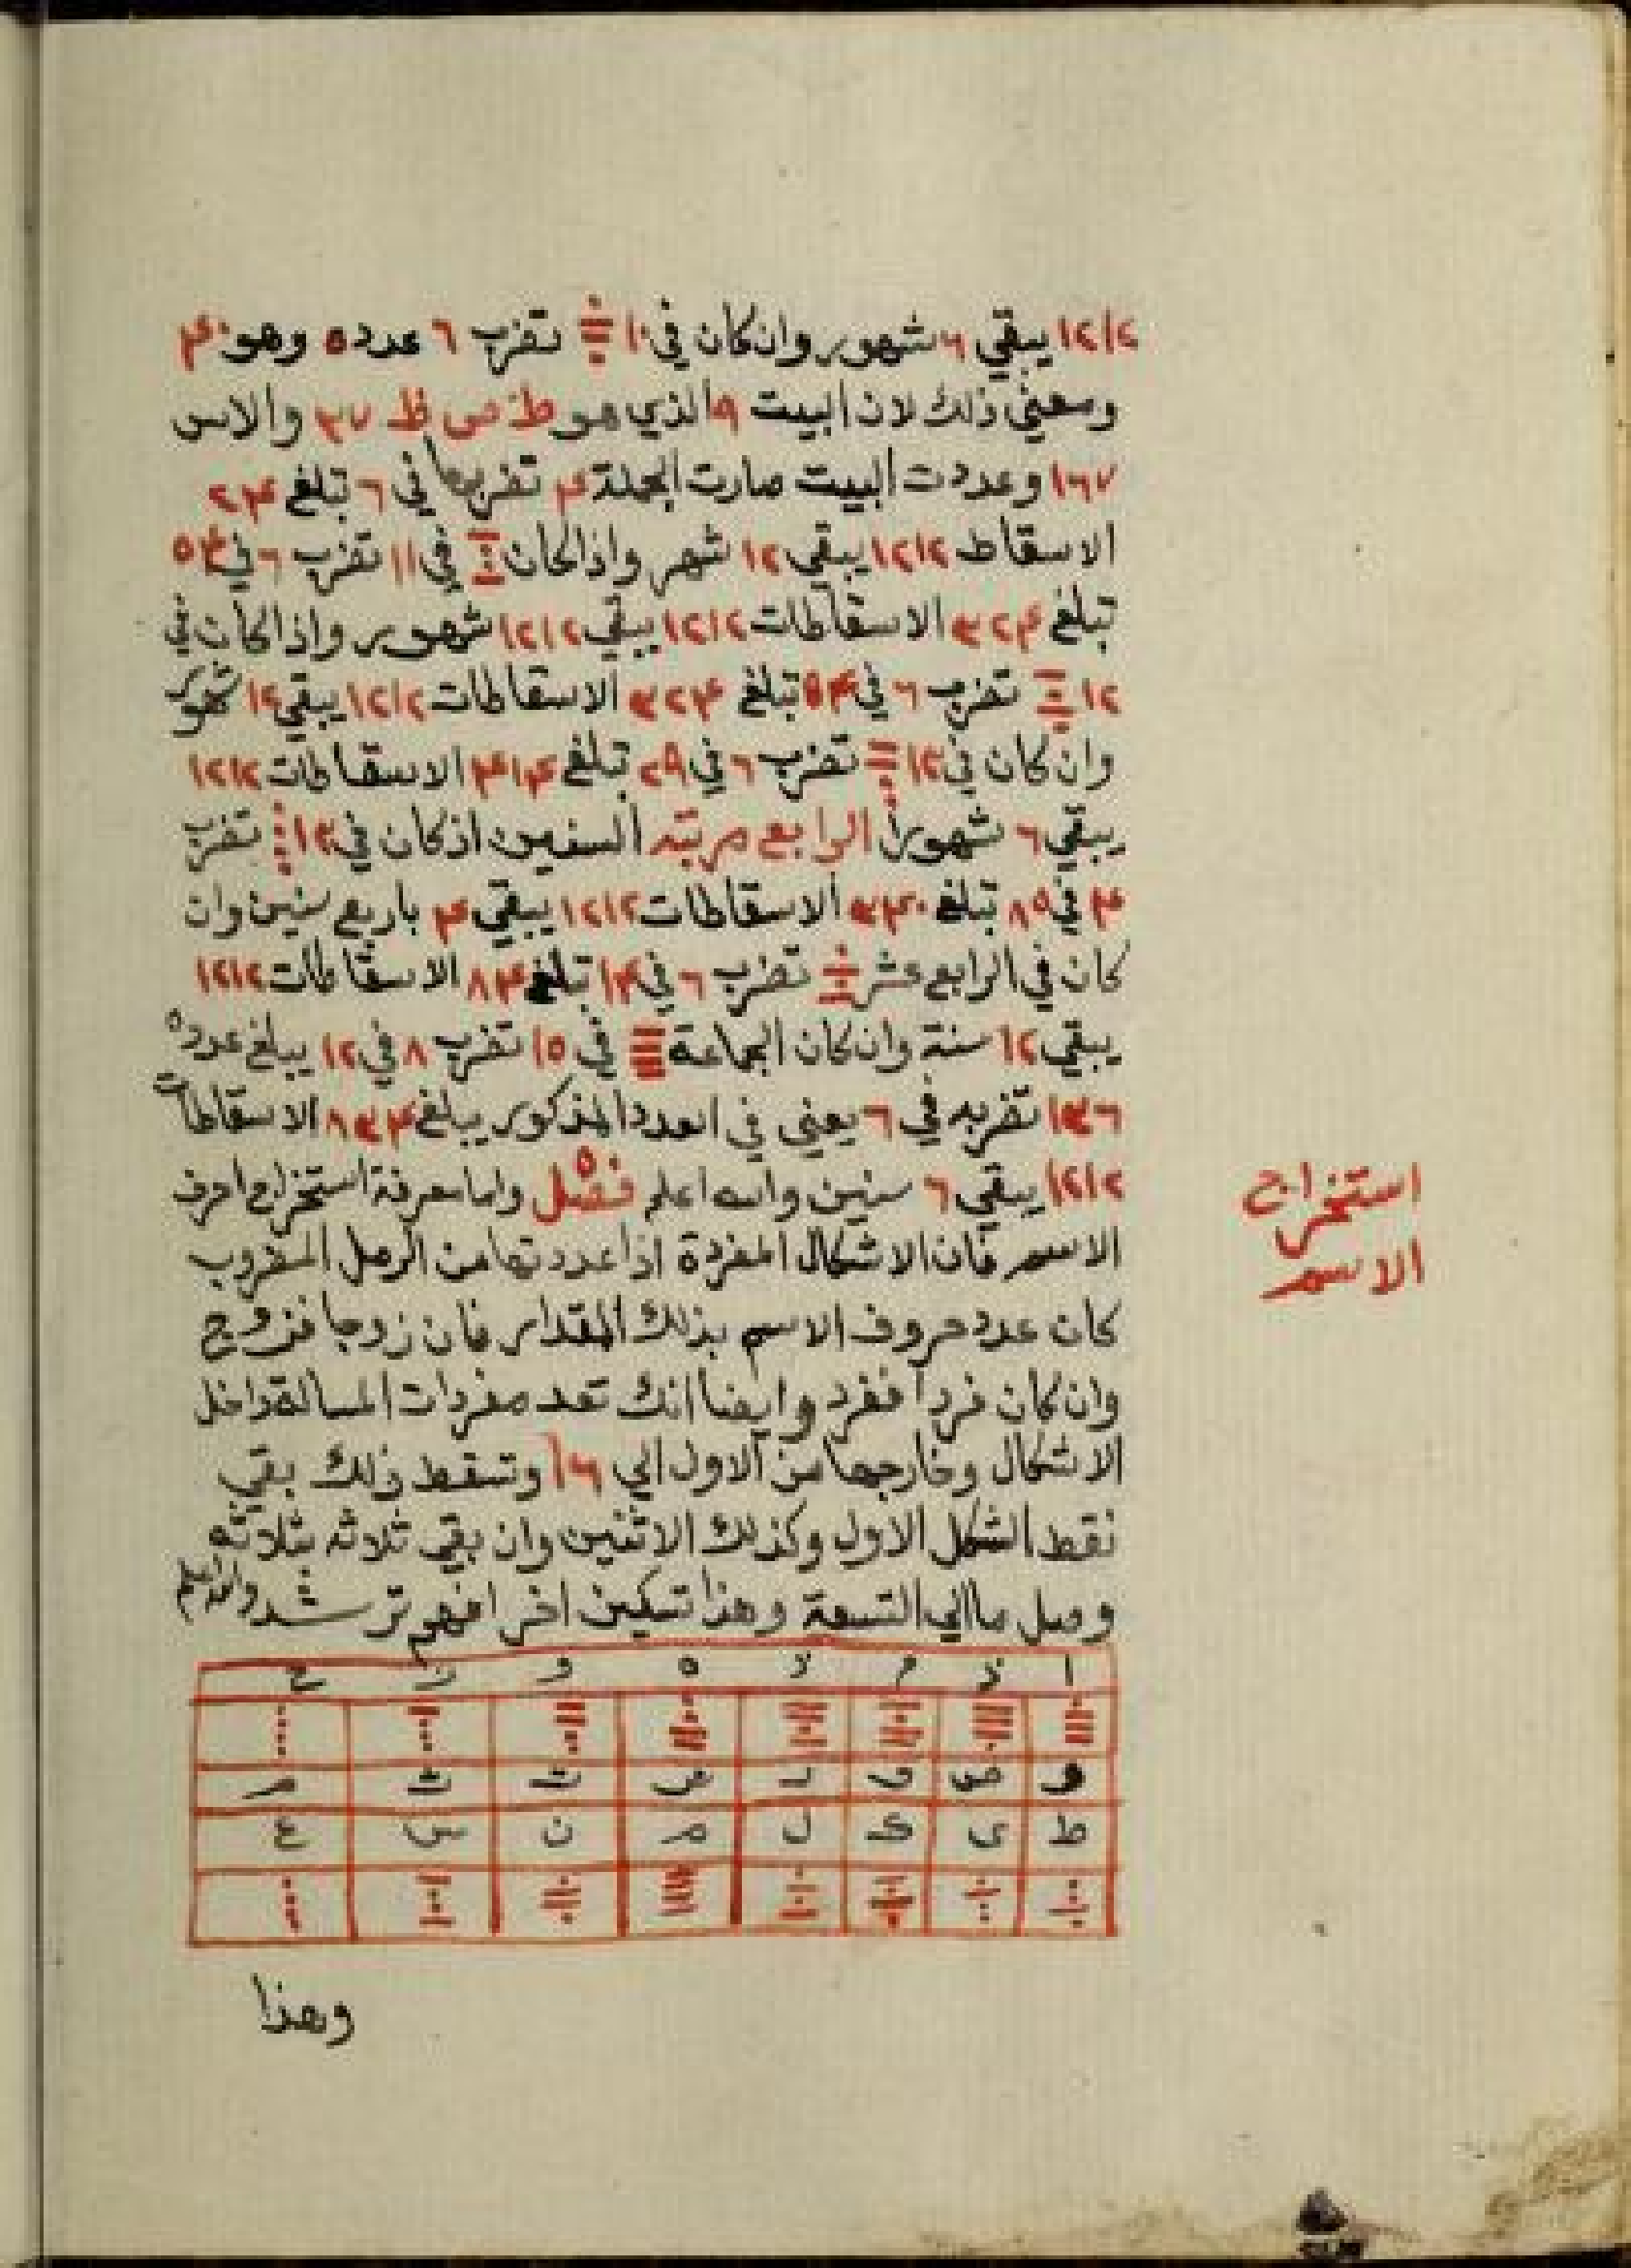 ١٢١٢ يبقي ٦ شهور وان كان في ١٠ تضرب ٦ عدد ٥ وهو ٤٠
ومعني ذلك لان البيت ٩ الذي هو ط ض ظ ٢٧ والاس
١٦٧ وعددت البيت صارت الجملة ٤ تضربها في ٦ تبلغ ٢٤
الاسقاط ١٢١٢ يبقي ١٢ شهر واذا كان في ١١ تضرب ٦ في ٥٤
تبلغ ٣٢٤ الاسقاطات ١٢١٢ يبقي ١٢١٢ شهور واذا كان في
١٢ تضرب ٦ في ٥٤ تبلغ ٣٢٤ الاسقاطات ١٢١٢ يبقي ١٢ شهور
وان كان في ١٢ تضرب ٦ في ٢٩ تبلغ ٤١٤ الاسقاطات ١٢١٢
يبقي ٦ شهورا الرابع مرتبه السنين اذ كان في ١٣ تضرب
٤ في ٨٥ تبلغ ٣٤٠ الاسقاطات ١٢١٢ يبقي ٤ باربع سنين وان
كان في الرابع عشر تضرب ٦ في ١٤ تبلغ ٨٤ الاسقاطات ١٢١٢
يبقي ١٢ سنة وان كان الجماعة في ١٥ تضرب ٨ في ١٢ يبلغ عدده
١٣٦ تضربه في ٦ يعني في العدد المذكور يبلغ ٨٣٤ الاسقاطات
١٢١٢ يبقي ٦ سنين والله اعلم فصل واما معرفة استخراج احرف
الاسم فان الاشكال المفردة اذا عددتها من الرمل المضروب
كان عدد حروف الاسم بذلك المقدار فان زوجا فزوج
وان كان فردا ففرد وايضا انك تعد مفردات المسالة داخل
الاشكال وخارجها من الاول الي ١٦ وتسقط ذلك بقي
نقط الشكل الاول وكذلك الاثنين وان بقي ثلاثه بثلاثه
وصل ماالي التسعة وهذا تسكين اخر افهم ترشد والله اعلم
استخراج
الاسم
ا د ه و ز ح
ص ث م
ط ي ك ل م ن س ع
وهذا